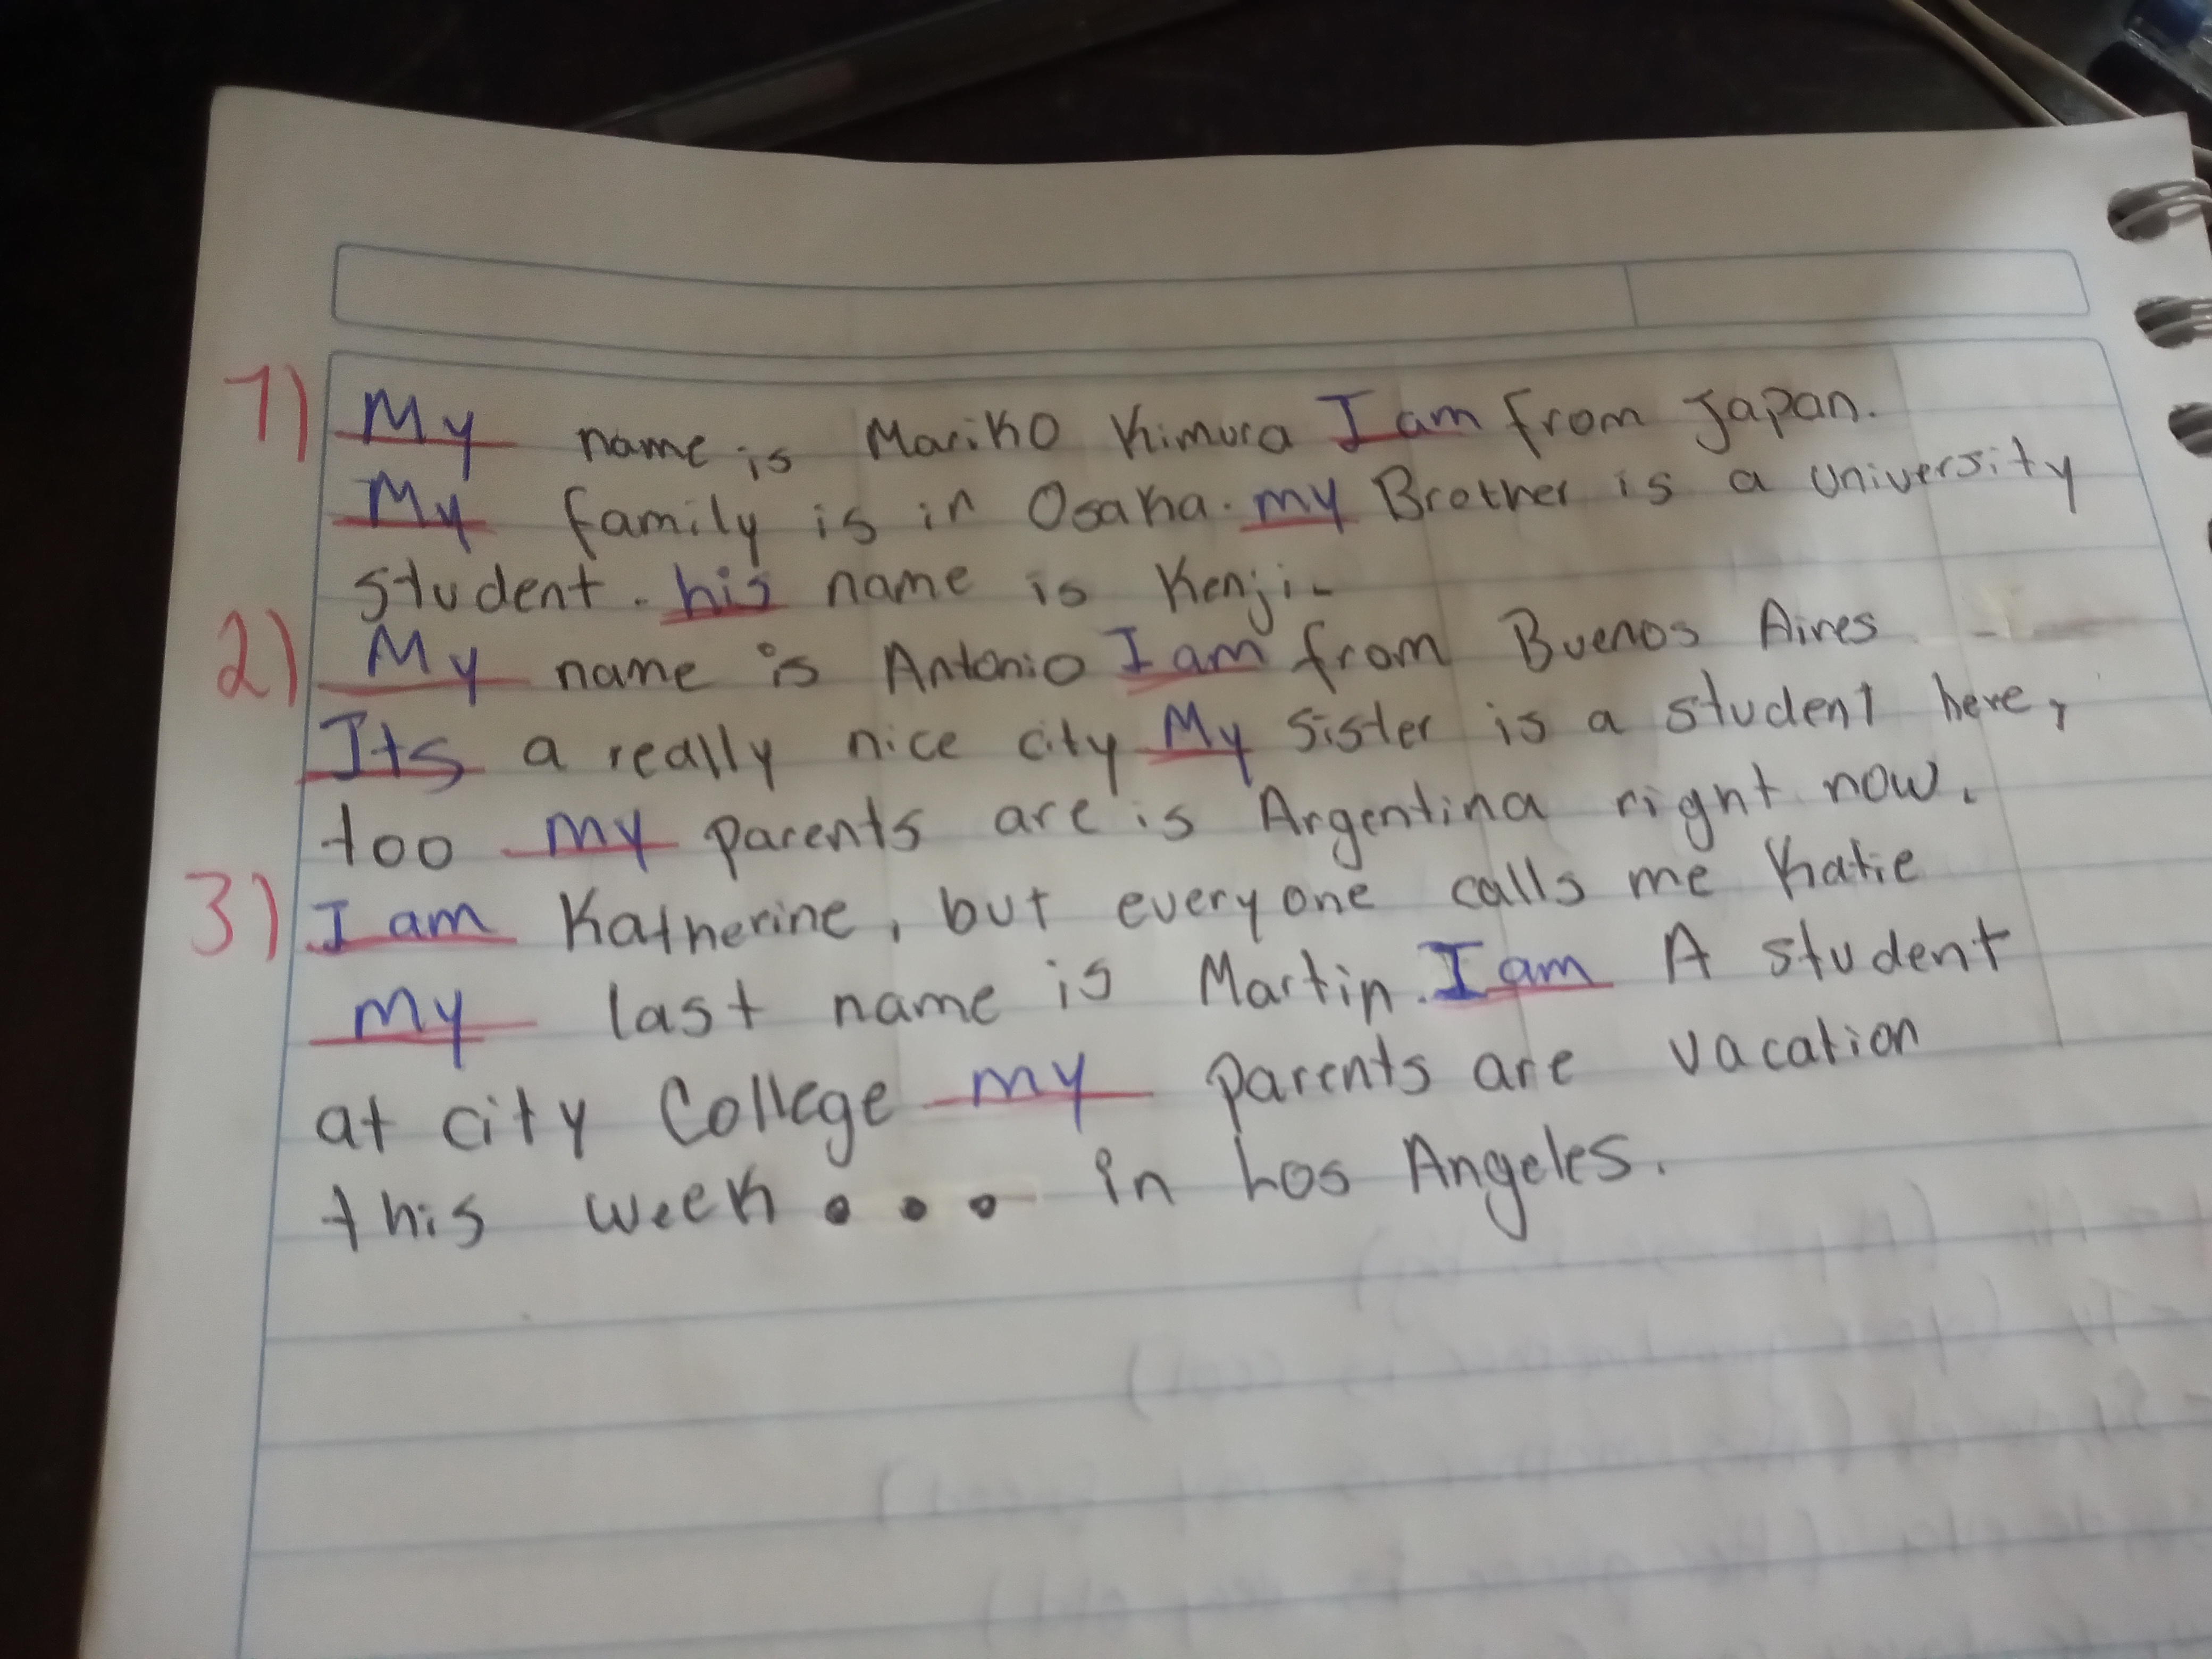 1) My name is Mariko Kimura I am from Japan.
My family is in Osaka. my Brother is a university
student. his name is Kenji.
2) My name is Antonio I am from Buenos Aires
Its a really nice city My sister is a student here,
too my parents are is Argentina right now.
3) I am Katherine, but everyone calls me Katie
my last name is Martin. I am A student
at city College my parents are vacation
this week... in Los Angeles.